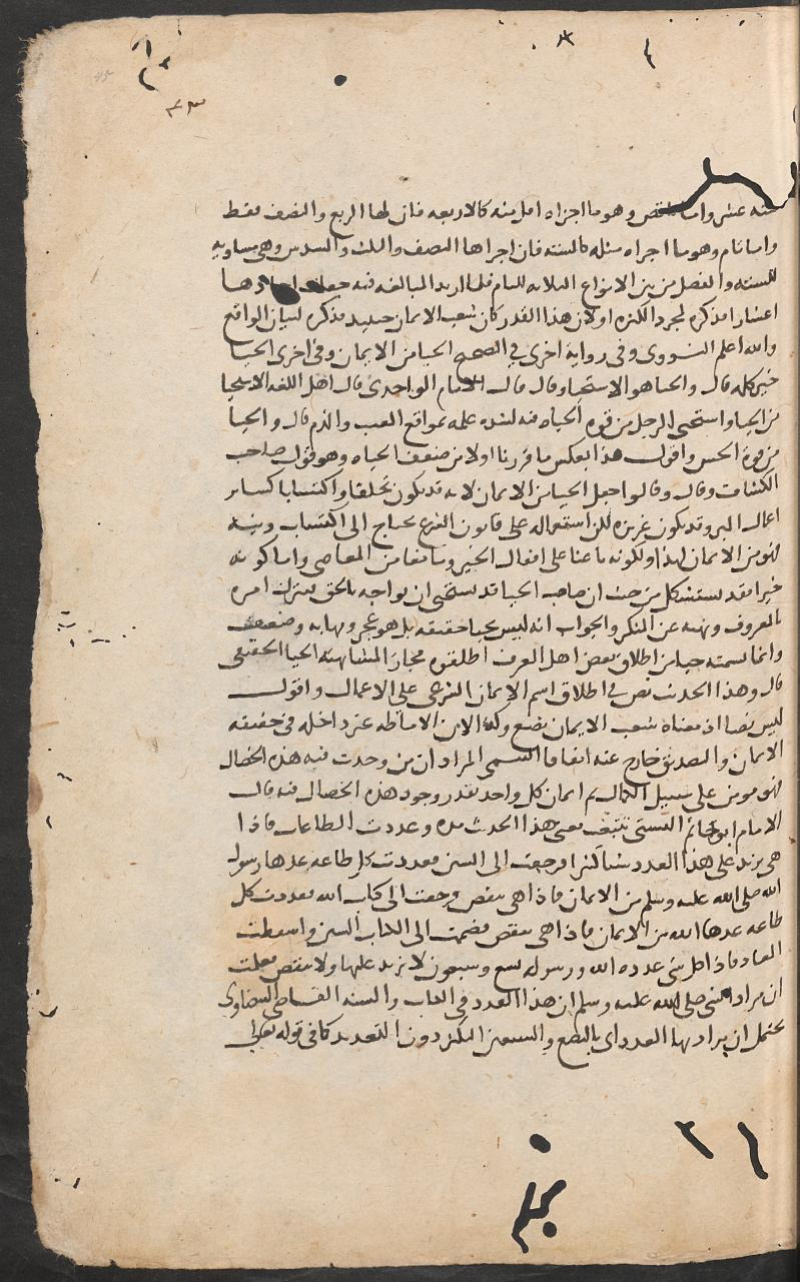 ٤٣
سته عشر واما ناقص وهو ما اجزاه اقل منه كالاربعه فان لها الربع والنصف فقط
واما تام وهو ما اجزاه مثله كالسته فان اجزاها النصف والثلث والسدس وهي مساويه
للسته والفضل من بين الانواع الثلاثه للتام فلما اريد المبالغه فيه جعلت احادها
اعشارا فذكره لمجرد الكثره او لان هذا القدر كان شعب الايمان حينيذ فذكره لبيان الواقع
والله اعلم النووى وفى رواية اخرى في الصحيح الحيا من الايمان وفى اخرى الحيا
خير كله قال والحيا هو الاستحيا وقال قال الامام الواحدى قال اهل اللغه الاستحيا
من الحيا واستحى الرجل من قوه الحياه فيه لشده علمه بمواقع العيب والذم قال والحيا
من قوة الحس واقول هذا بعكس ما قررنا اولا من ضعف الحياه وهو قول صاحب
الكشاف وقال وقالوا جعل الحيا من الايمان لانه قد يكون تخلقا واكتسابا كساير
اعمال البر وقد يكون غريزه لكن استعماله على قانون الشرع يحتاج الى اكتساب ونيه
فهو من الايمان لهذا ولكونه باعثا على افعال الخير ومانعا من المعاصى واما كونه
خيرا فقد يستشكل من حيث ان صاحب الحيا قد يستحى ان يواجه بالحق فيترك امره
بالمعروف ونهيه عن المنكر والجواب انه ليس بحيا حقيقه بل هو عجز ومهابه وضعف
وانما تسميته حيا من اطلاق بعض اهل العرف اطلقوه مجازا لمشابهته الحيا الحقيقى
قال وهذا الحديث نص في اطلاق اسم الايمان الشرعى على الاعمال واقول
ليس نصا اذ معناه شعب الايمان بضع وكذا لان الاماطه غير داخله فى حقيقه
الايمان والتصديق خارج عنه اتفاقا التيمى المراد ان من وجدت فيه هذه الخصال
فهو مومن على سبيل الكمال ثم ايمان كل واحد بقدر وجود هذه الخصال فيه قال
الامام ابو حاتم البستى تتبعت معنى هذا الحديث مده وعددت الطاعات فاذا
هى تزيد على هذا العدد شيا كثيرا فرجعت الى السنن فعددت كل طاعه عدها رسول
الله صلى الله عليه وسلم من الايمان فاذا هى تنقص فرجعت الى كتاب الله فعددت كل
طاعه عدها الله من الايمان فاذا هى تنقص فضممت الى الكتاب السنن واسقطت
المعاد فاذا كل شى عده الله ورسوله تسع وسبعون لا تزيد عليها ولا تنقص فعلمت
ان مراد النبى صلى الله عليه وسلم ان هذا العدد فى الكتاب والسنه القاضى البيضاوى
يحتمل ان يراد بهذا العدد اى بالبضع والسبعين التكثير دون التعديد كما فى قوله تعالى